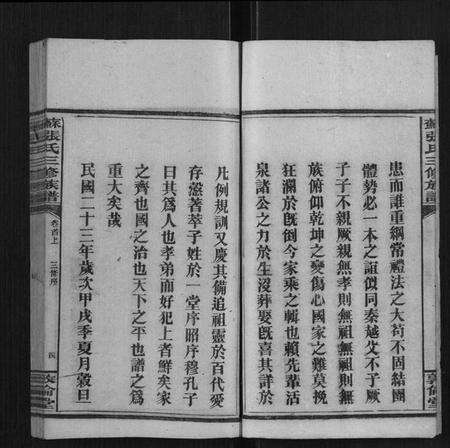 蘇張氏三修族譜
患而誰重綱常禮法之大苟不固結團
體勢必一本之誼似同秦越父不子厥
子子不親厥親無孝則無祖無祖則無
族俯仰乾坤之變傷心國家之難莫挽
狂瀾於既倒今家乘之輯也賴先輩活
泉諸公之力於生沒葬娶既喜其詳於
敦倫堂
凡例規訓又慶其備追祖靈於百代愛
存慤著萃子姓於一堂序昭序穆孔子
曰其為人也孝弟而好犯上者鮮矣家
之齊也國之治也天下之平也譜之為
重大矣哉
民國二十三年歲次甲戌季夏月穀旦
蘇張氏三修族譜
卷首上
三修序
四
敦倫堂